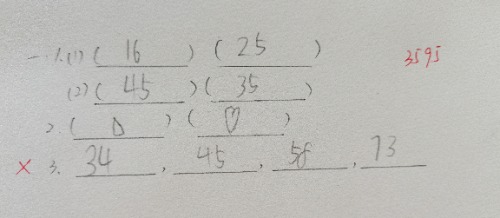 一、1.(1)( 16 ) ( 25 ) 3595
(2)( 45 )( 35 )
2.( △ ) ( ♡ )
× 3. 34 , 45 , 58 , 73